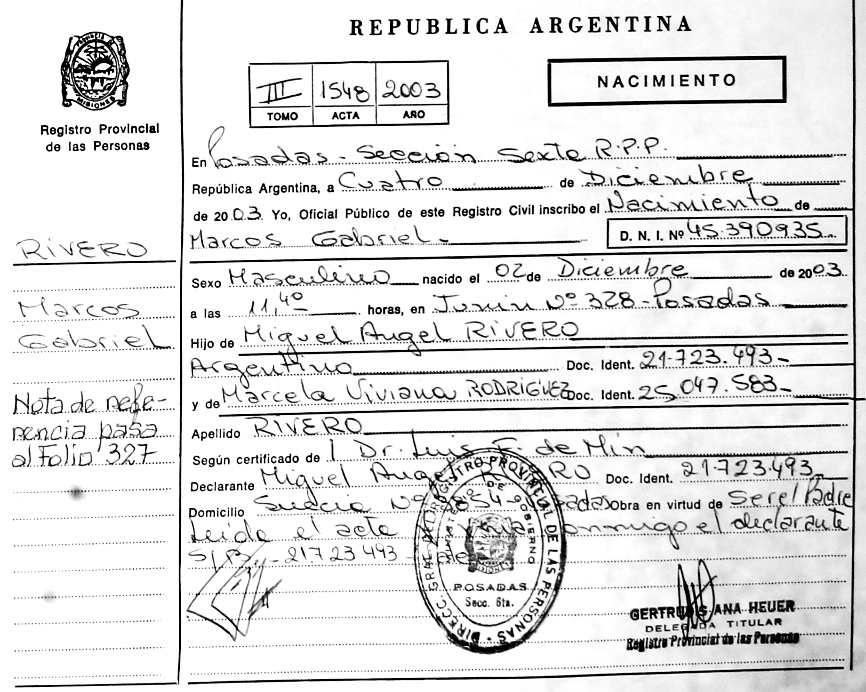 REPUBLICA ARGENTINA
PROVINCIA DE
MISIONES
Registro Provincial
de las Personas
III 1548 2003
TOMO ACTA AÑO
NACIMIENTO
En Posadas - Sección Sexta R.P.P.
República Argentina, a Cuatro de Diciembre
de 2003 Yo, Oficial Público de este Registro Civil inscribo el Nacimiento de
Marcos Gabriel - D. N. I. Nº 45.390935.
RIVERO
Marcos
Gabriel
Nota de refe-
rencia pasa
al Folio 327
Sexo Masculino nacido el 02 de Diciembre de 2003
a las 11,40 horas, en Junin Nº 328 - Posadas
Hijo de Miguel Angel RIVERO
Argentino Doc. Ident. 21.723.493-
y de Marcela Viviana RODRIGUEZ Doc. Ident. 25.047.583-
Apellido RIVERO
Según certificado de Dr. Luis F. de Min
Declarante Miguel Angel RO Doc. Ident. 21.723.493
Domicilio Suecia Nº 54 adas Obra en virtud de Ser el Padre
Leida el acta onmigo el declarante
21723493
DIRECC. GRAL. DEL REGISTRO PROVINCIAL DE LAS PERSONAS
MINISTERIO DE GOBIERNO
POSADAS
Secc. 6ta.
GERTRUDIS ANA HEUER
DELEGADA TITULAR
Registro Provincial de las Personas